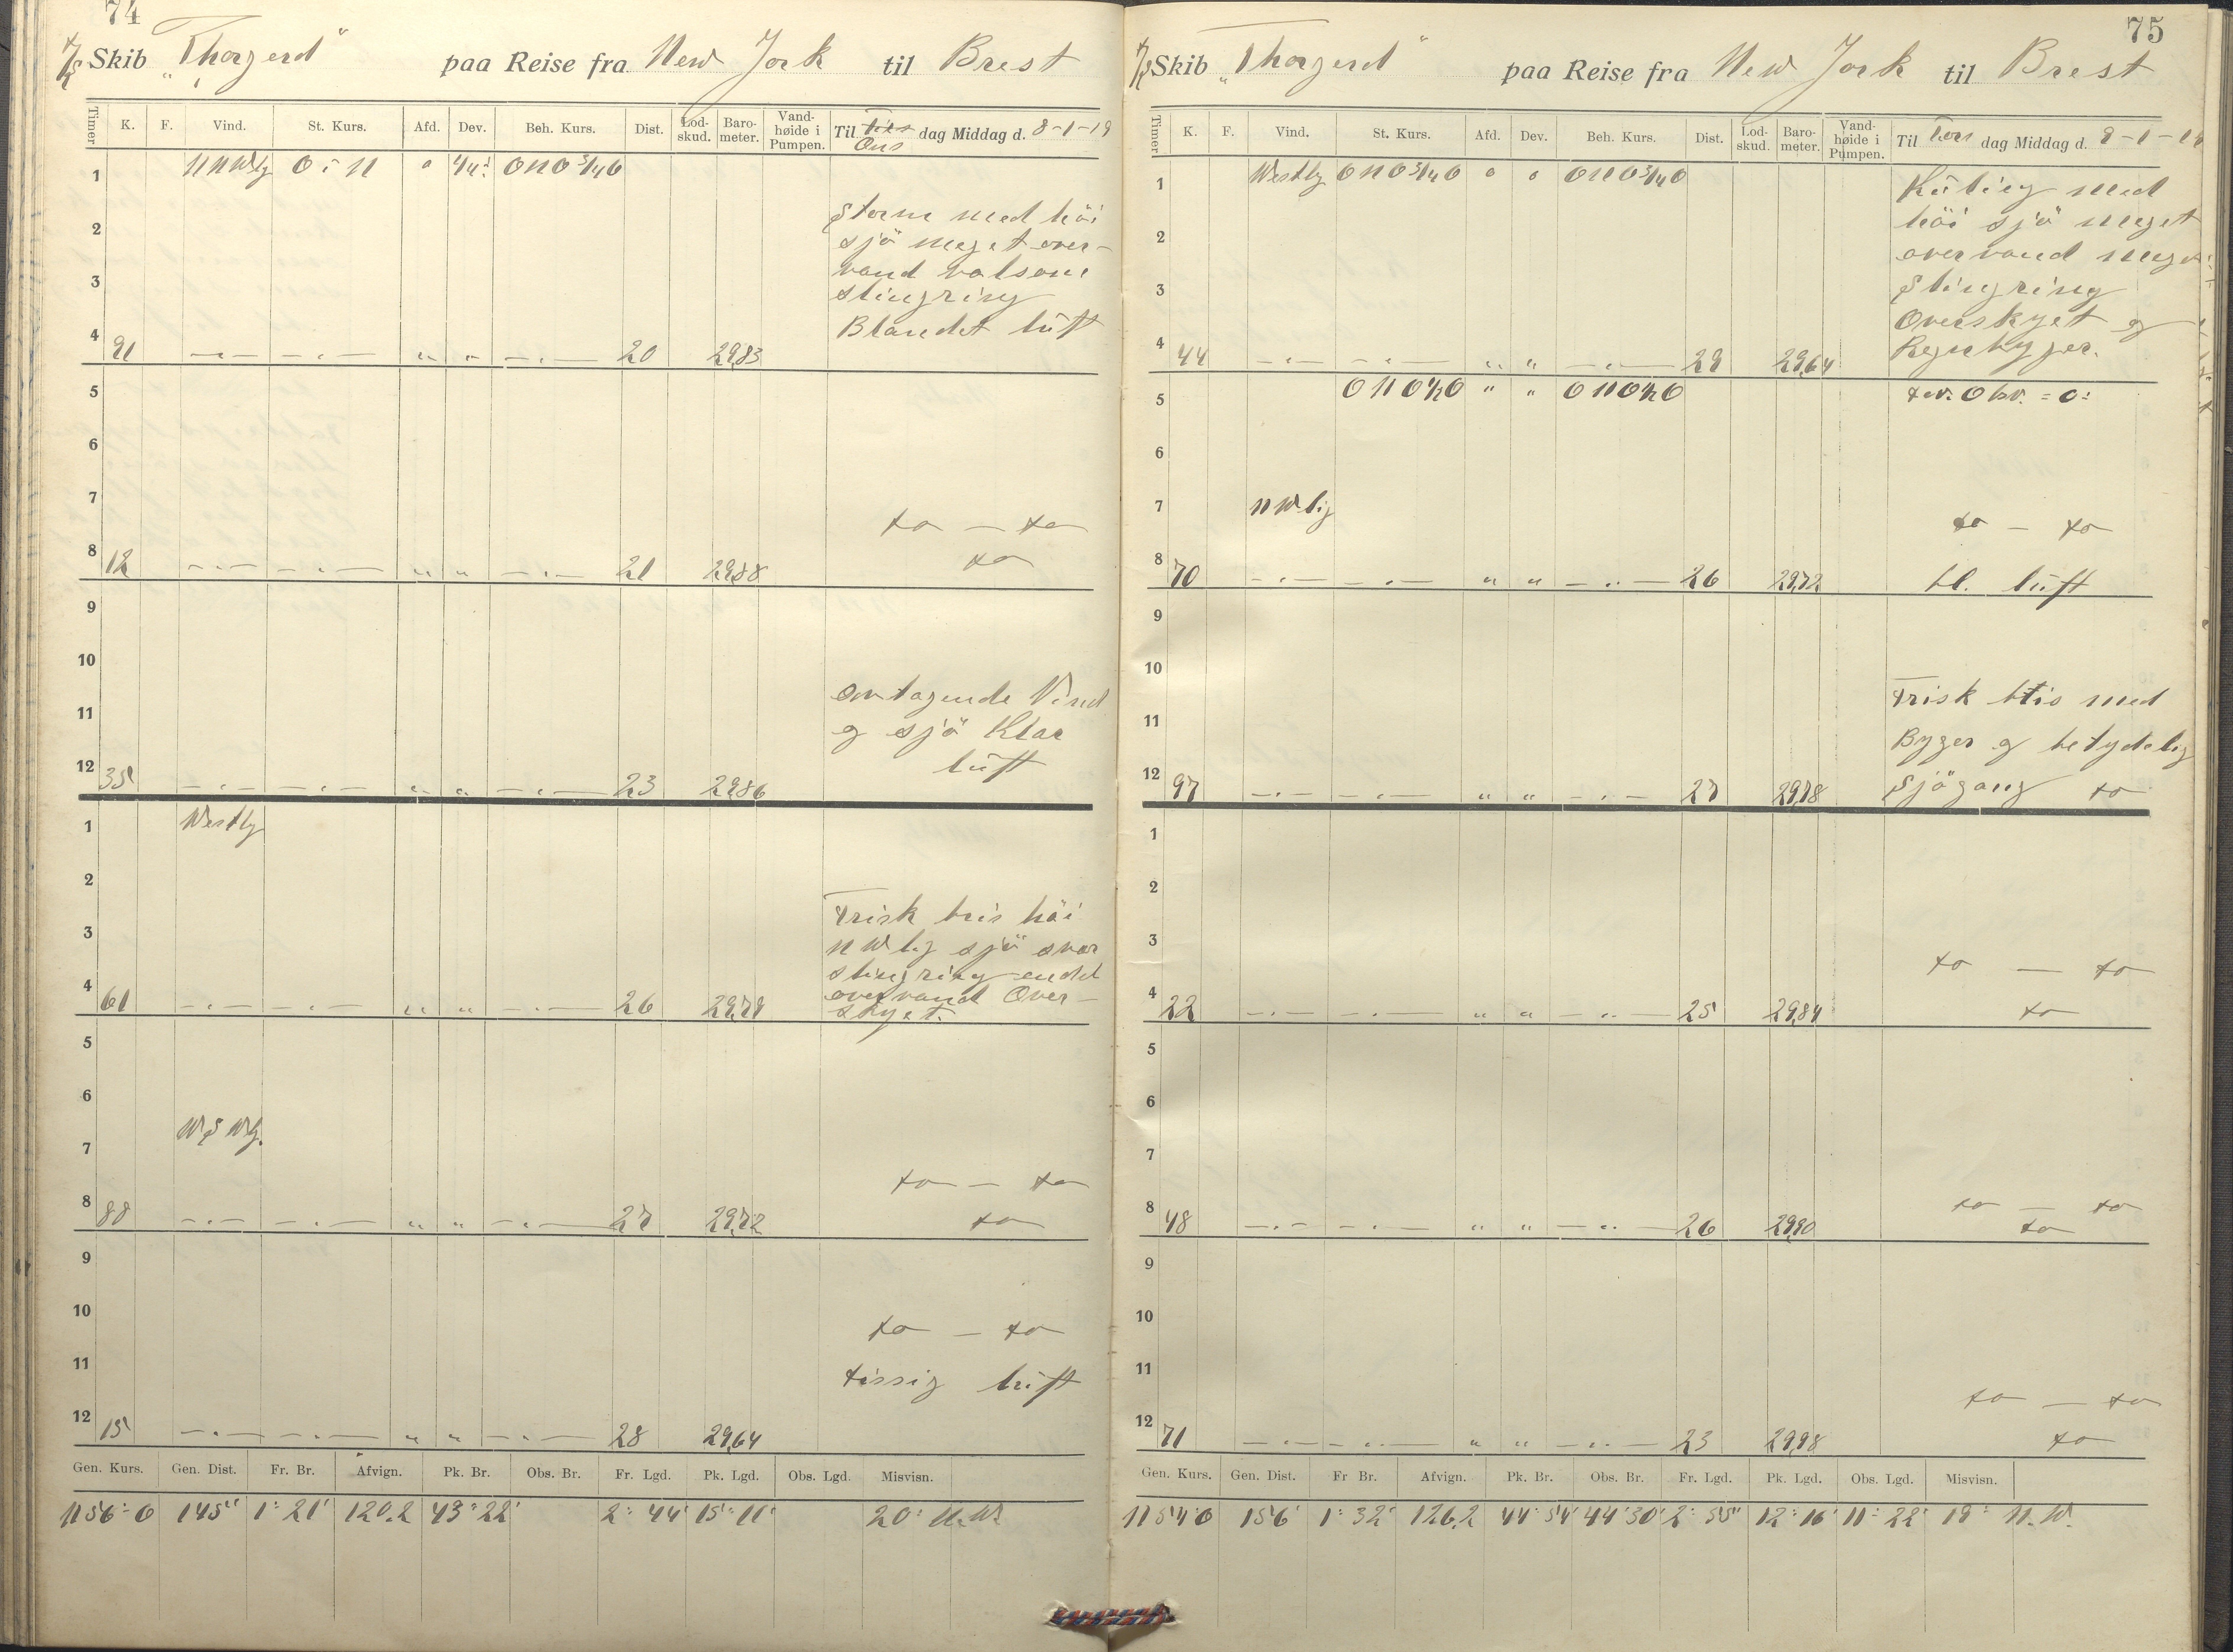 74
D/S Skib "Thorgerd" paa Reise fra New York til Brest
Timer K. F. Vind. St. Kurs. Afd. Dev. Beh. Kurs. Dist. Lod-skud. Baro-meter. Vand-høide i Pumpen. Til Ons dag Middag d. 8-1-19
1 NNWlig O : N 0 ONO 3/4 O
2 Storm med höi
sjö meget over-
3 vand volsom
slingring
4 Blandet luft
91 20 29,83
5
6
7 do — do
8 12 21 29,88 do
9
10
11 Avtagende Vind
og sjö Klar
12 35 23 29,86 luft
1 Westlig
2
3 Frisk bris höi
NWlig sjö svær
slingring endel
4 61 26 29,79 overvand Over-
skyet.
5
6
7 WSWlg.
do — do
8 88 27 29,72 do
9
10 do — do
11 Disig luft
12 15 28 29,64
Gen. Kurs. Gen. Dist. Fr. Br. Afvign. Pk. Br. Obs. Br. Fr. Lgd. Pk. Lgd. Obs. Lgd. Misvisn.
N 56° O 145' 1° 21' 120,2 43° 22' 2° 44' 15° 11' 20° N.W.
75
D/S Skib "Thorgerd" paa Reise fra New York til Brest
Timer K. F. Vind. St. Kurs. Afd. Dev. Beh. Kurs. Dist. Lod-skud. Baro-meter. Vand-høide i Pumpen. Til Tors dag Middag d.
1 Westlig ONO 3/4 O 0 0 ONO 3/4 O Kuling med
2 höi sjö meget
overvand meget
3 Slingring
Overskyet og
4 44 29 29,64 Regnbyger.
5 ONO 1/2 O " " ONO 1/2 O Dev. Obv. = 0°
6
7 NWlig do — do
8 70 26 29,72 bl. luft
9
10
11 Frisk bris med
Byger og betydelig
12 97 27 29,78 Sjögang do
1
2
3
do — do
4 22 25 29,84 do
5
6
7
8 48 26 29,90 do — do
do
9
10
11
do — do
12 71 23 29,98 do
Gen. Kurs. Gen. Dist. Fr Br. Afvign. Pk. Br. Obs. Br. Fr. Lgd. Pk. Lgd. Obs. Lgd. Misvisn.
N 54° O 156' 1° 32' 126,2 44° 54' 44° 30' 2° 55' 12° 16' 11° 22' 19° N.W.